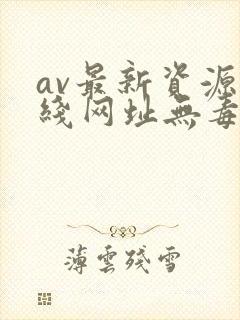 av最新資源
綫网址無毒
薄雲殘雪